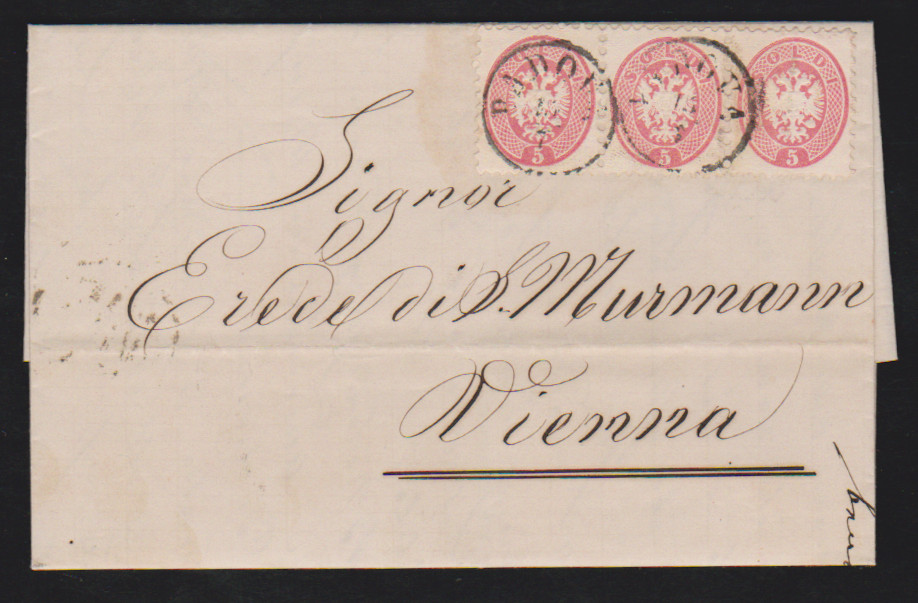 SOLDI SOLDI SOLDI
5 5 5
PADOVA PADOVA
Signor
Erede di S. Murmann
Vienna